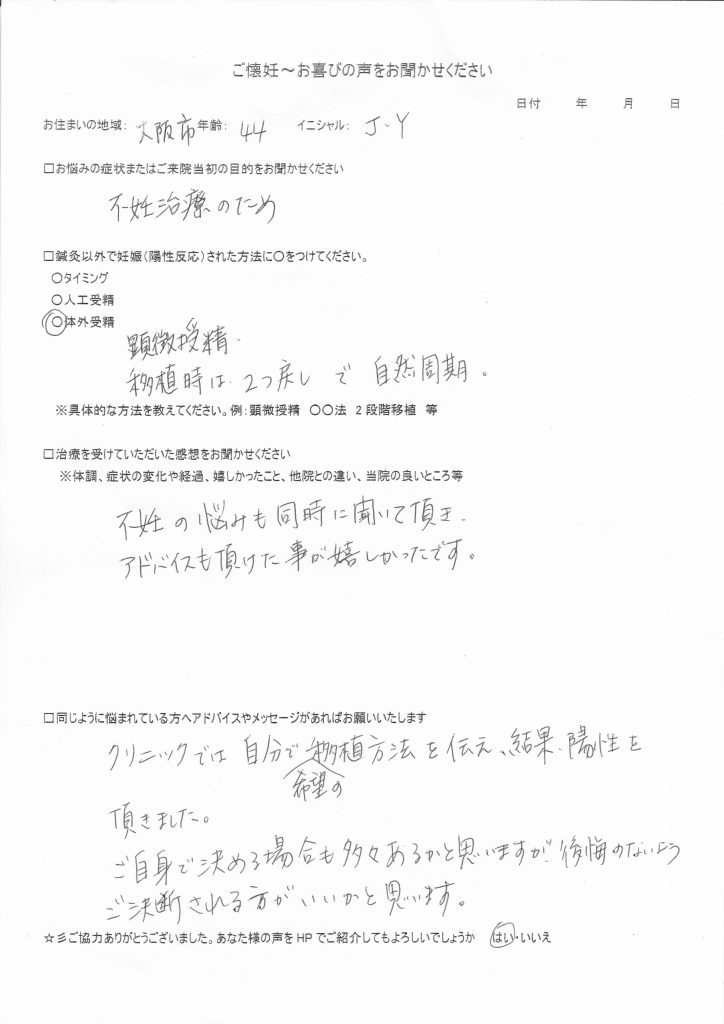 ご懐妊～お喜びの声をお聞かせください
日付　　年　　月　　日
お住まいの地域： 大阪市 年齢： 44 イニシャル： J・Y
□お悩みの症状またはご来院当初の目的をお聞かせください
不妊治療のため
□鍼灸以外で妊娠（陽性反応）された方法に〇をつけてください。
〇タイミング
〇人工受精
〇体外受精
顕微授精.
移植時は.2つ戻しで 自然周期。
※具体的な方法を教えてください。例：顕微授精　〇〇法　2段階移植　等
□治療を受けていただいた感想をお聞かせください
※体調、症状の変化や経過、嬉しかったこと、他院との違い、当院の良いところ等
不妊の悩みも同時に聞いて頂き.
アドバイスも頂けた事が嬉しかったです。
□同じように悩まれている方へアドバイスやメッセージがあればお願いいたします
クリニックでは 自分で移植方法を伝え、結果.陽性を
希望の
頂きました。
ご自身で決める場合も多々あるかと思いますが.後悔のないよう
ご決断される方がいいかと思います。
☆彡ご協力ありがとうございました。あなた様の声をHPでご紹介してもよろしいでしょうか　はい・いいえ